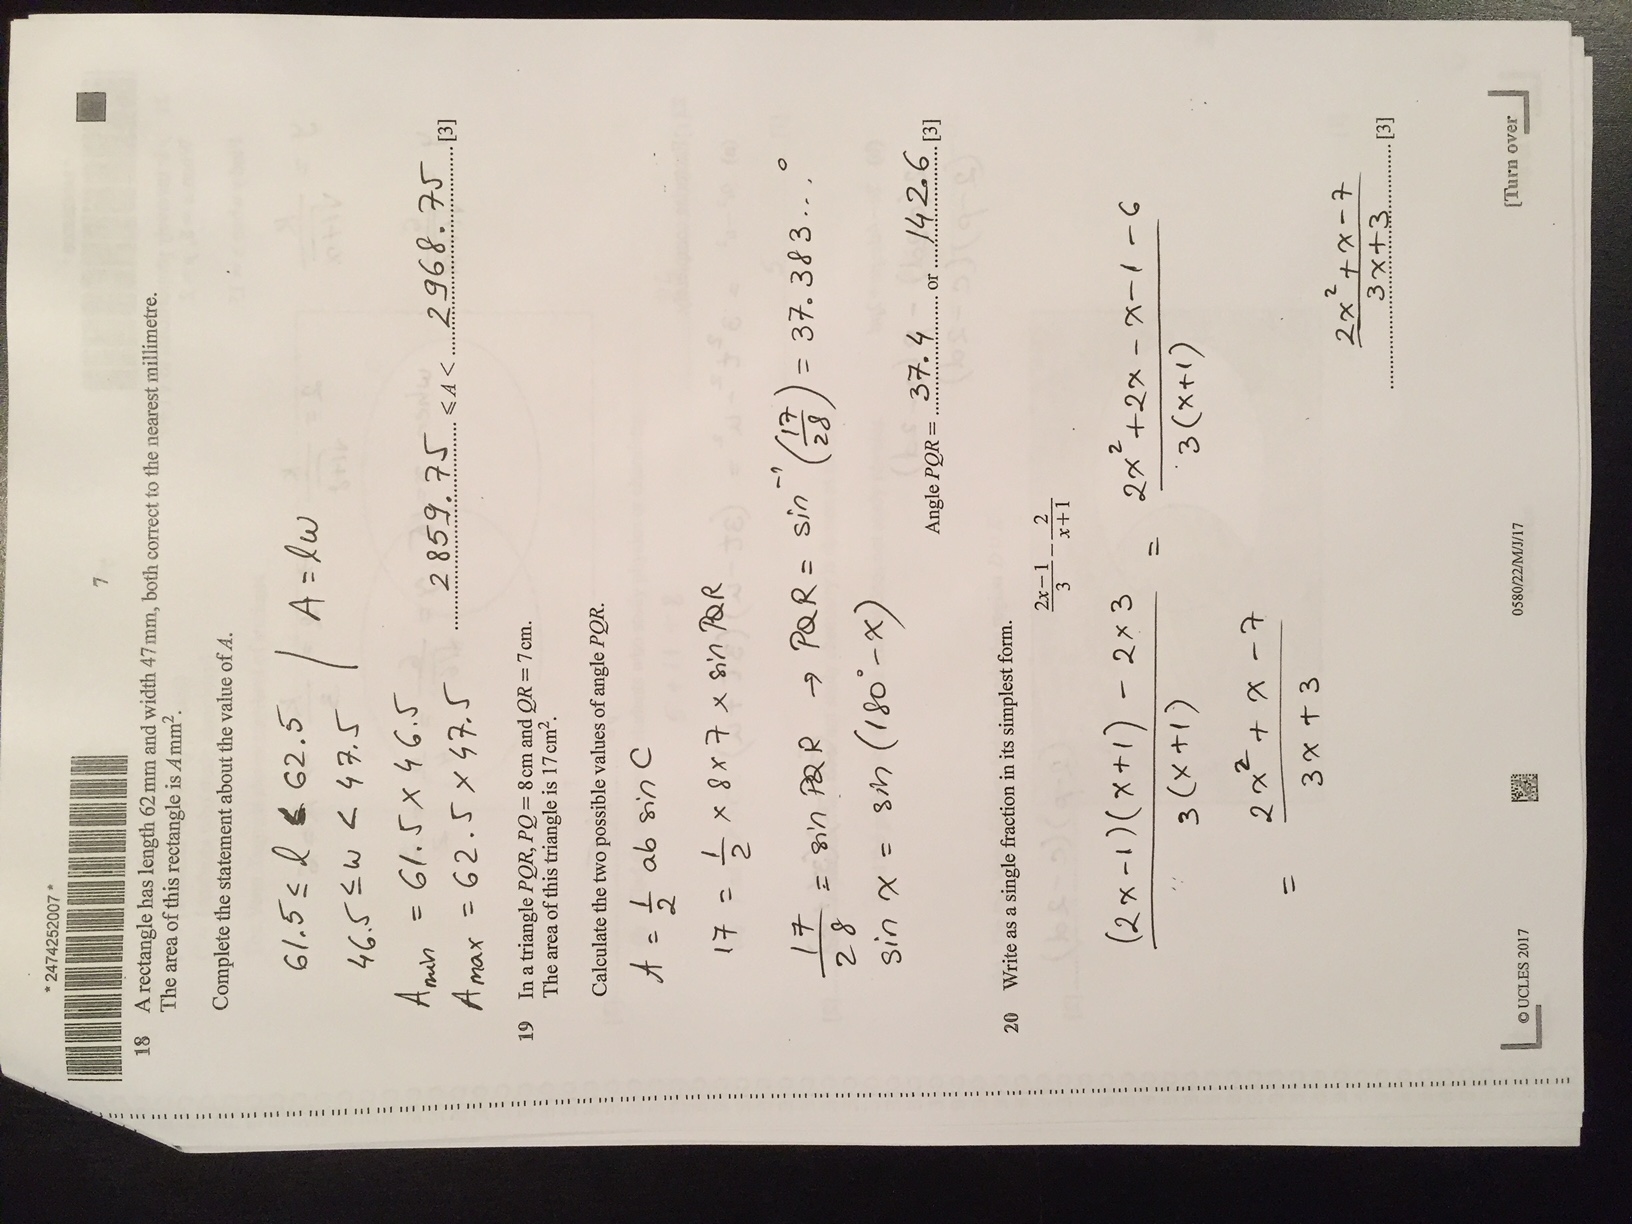 * 2474252007 *
7
18 A rectangle has length 62 mm and width 47 mm, both correct to the nearest millimetre.
The area of this rectangle is A mm².
Complete the statement about the value of A.
61.5 ≤ l < 62.5
46.5 ≤ w < 47.5
A = lw
A min = 61.5 × 46.5
A max = 62.5 × 47.5
2859.75 ≤ A < 2968.75 [3]
19 In a triangle PQR, PQ = 8 cm and QR = 7 cm.
The area of this triangle is 17 cm².
Calculate the two possible values of angle PQR.
A = 1/2 ab sin C
17 = 1/2 × 8 × 7 × sin PQR
17/28 = sin PQR → PQR = sin⁻¹ (17/28) = 37.383...°
sin x = sin (180° - x)
Angle PQR = 37.4 or 142.6 [3]
20 Write as a single fraction in its simplest form.
(2x-1)/3 - 2/(x+1)
((2x-1)(x+1) - 2×3)/(3(x+1)) = (2x²+2x-x-1-6)/(3(x+1))
= (2x²+x-7)/(3x+3)
(2x²+x-7)/(3x+3) [3]
© UCLES 2017
0580/22/M/J/17
[Turn over